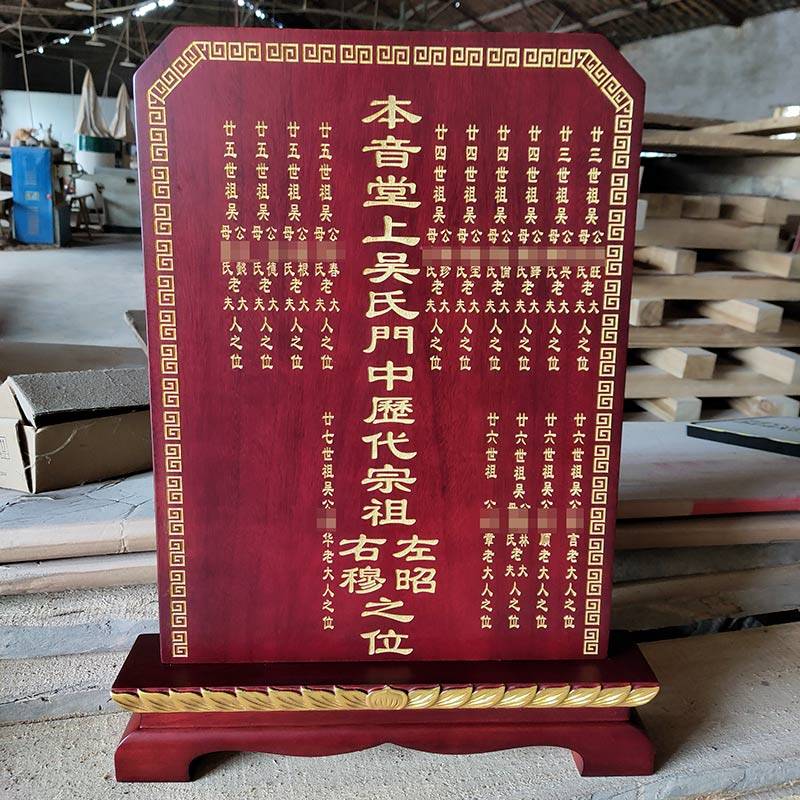 廿三世祖吴公母旺氏老大夫人之位
廿三世祖吴公母兴氏老大夫人之位
廿四世祖吴公母氏老大夫人之位
廿四世祖吴公母氏老大夫人之位
廿四世祖吴公母氏老大夫人之位
廿四世祖吴公母珍氏老大夫人之位
廿六世祖吴公言老大人之位
廿六世祖吴公順老大人之位
廿六世祖吴公母林氏老大夫人之位
廿六世祖公章老大人之位
本音堂上吴氏門中歷代宗祖左昭右穆之位
廿五世祖吴公母春氏老大夫人之位
廿五世祖吴公母根氏老大夫人之位
廿五世祖吴公母德氏老大夫人之位
廿五世祖吴公母氏老大夫人之位
廿七世祖吴公华老大人之位